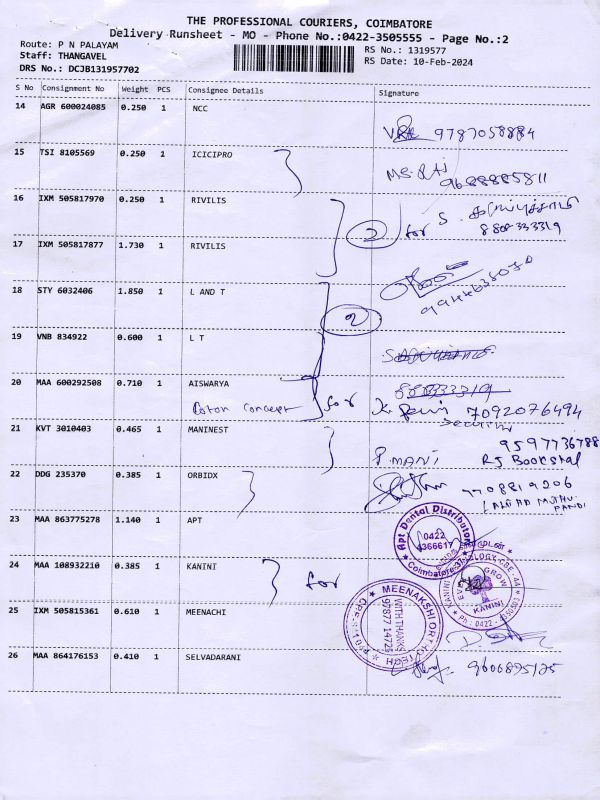 THE PROFESSIONAL COURIERS, COIMBATORE
Delivery Runsheet - MO - Phone No.:0422-3505555 - Page No.:2
Route: P N PALAYAM
Staff: THANGAVEL
DRS No.: DCJB131957702
RS No.: 1319577
RS Date: 10-Feb-2024
S No Consignment No Weight PCS Consignee Details Signature
14 AGR 600024085 0.250 1 NCC
9787058884
15 TSI 8105569 0.250 1 ICICIPRO
9688885811
16 IXM 505817970 0.250 1 RIVILIS
2 for S.
8808333319
17 IXM 505817877 1.730 1 RIVILIS
18 STY 6032406 1.850 1 L AND T
2
19 VNB 834922 0.600 1 L T
20 MAA 600292508 0.710 1 AISWARYA
concept for 7092076494
Security
21 KVT 3010403 0.465 1 MANINEST
9597736788
P. MANI RJ Bookstal
22 DDG 235370 0.385 1 ORBIDX
7708819206
23 MAA 863775278 1.140 1 APT
Apt Dental Distributor
0422
Coimbatore-37
24 MAA 108932210 0.385 1 KANINI
for
KANINI
25 IXM 505815361 0.610 1 MEENACHI
MEENAKSHI ORTHO TECH
WITH THANKS
97877 14725
26 MAA 864176153 0.410 1 SELVADARANI
9600895125